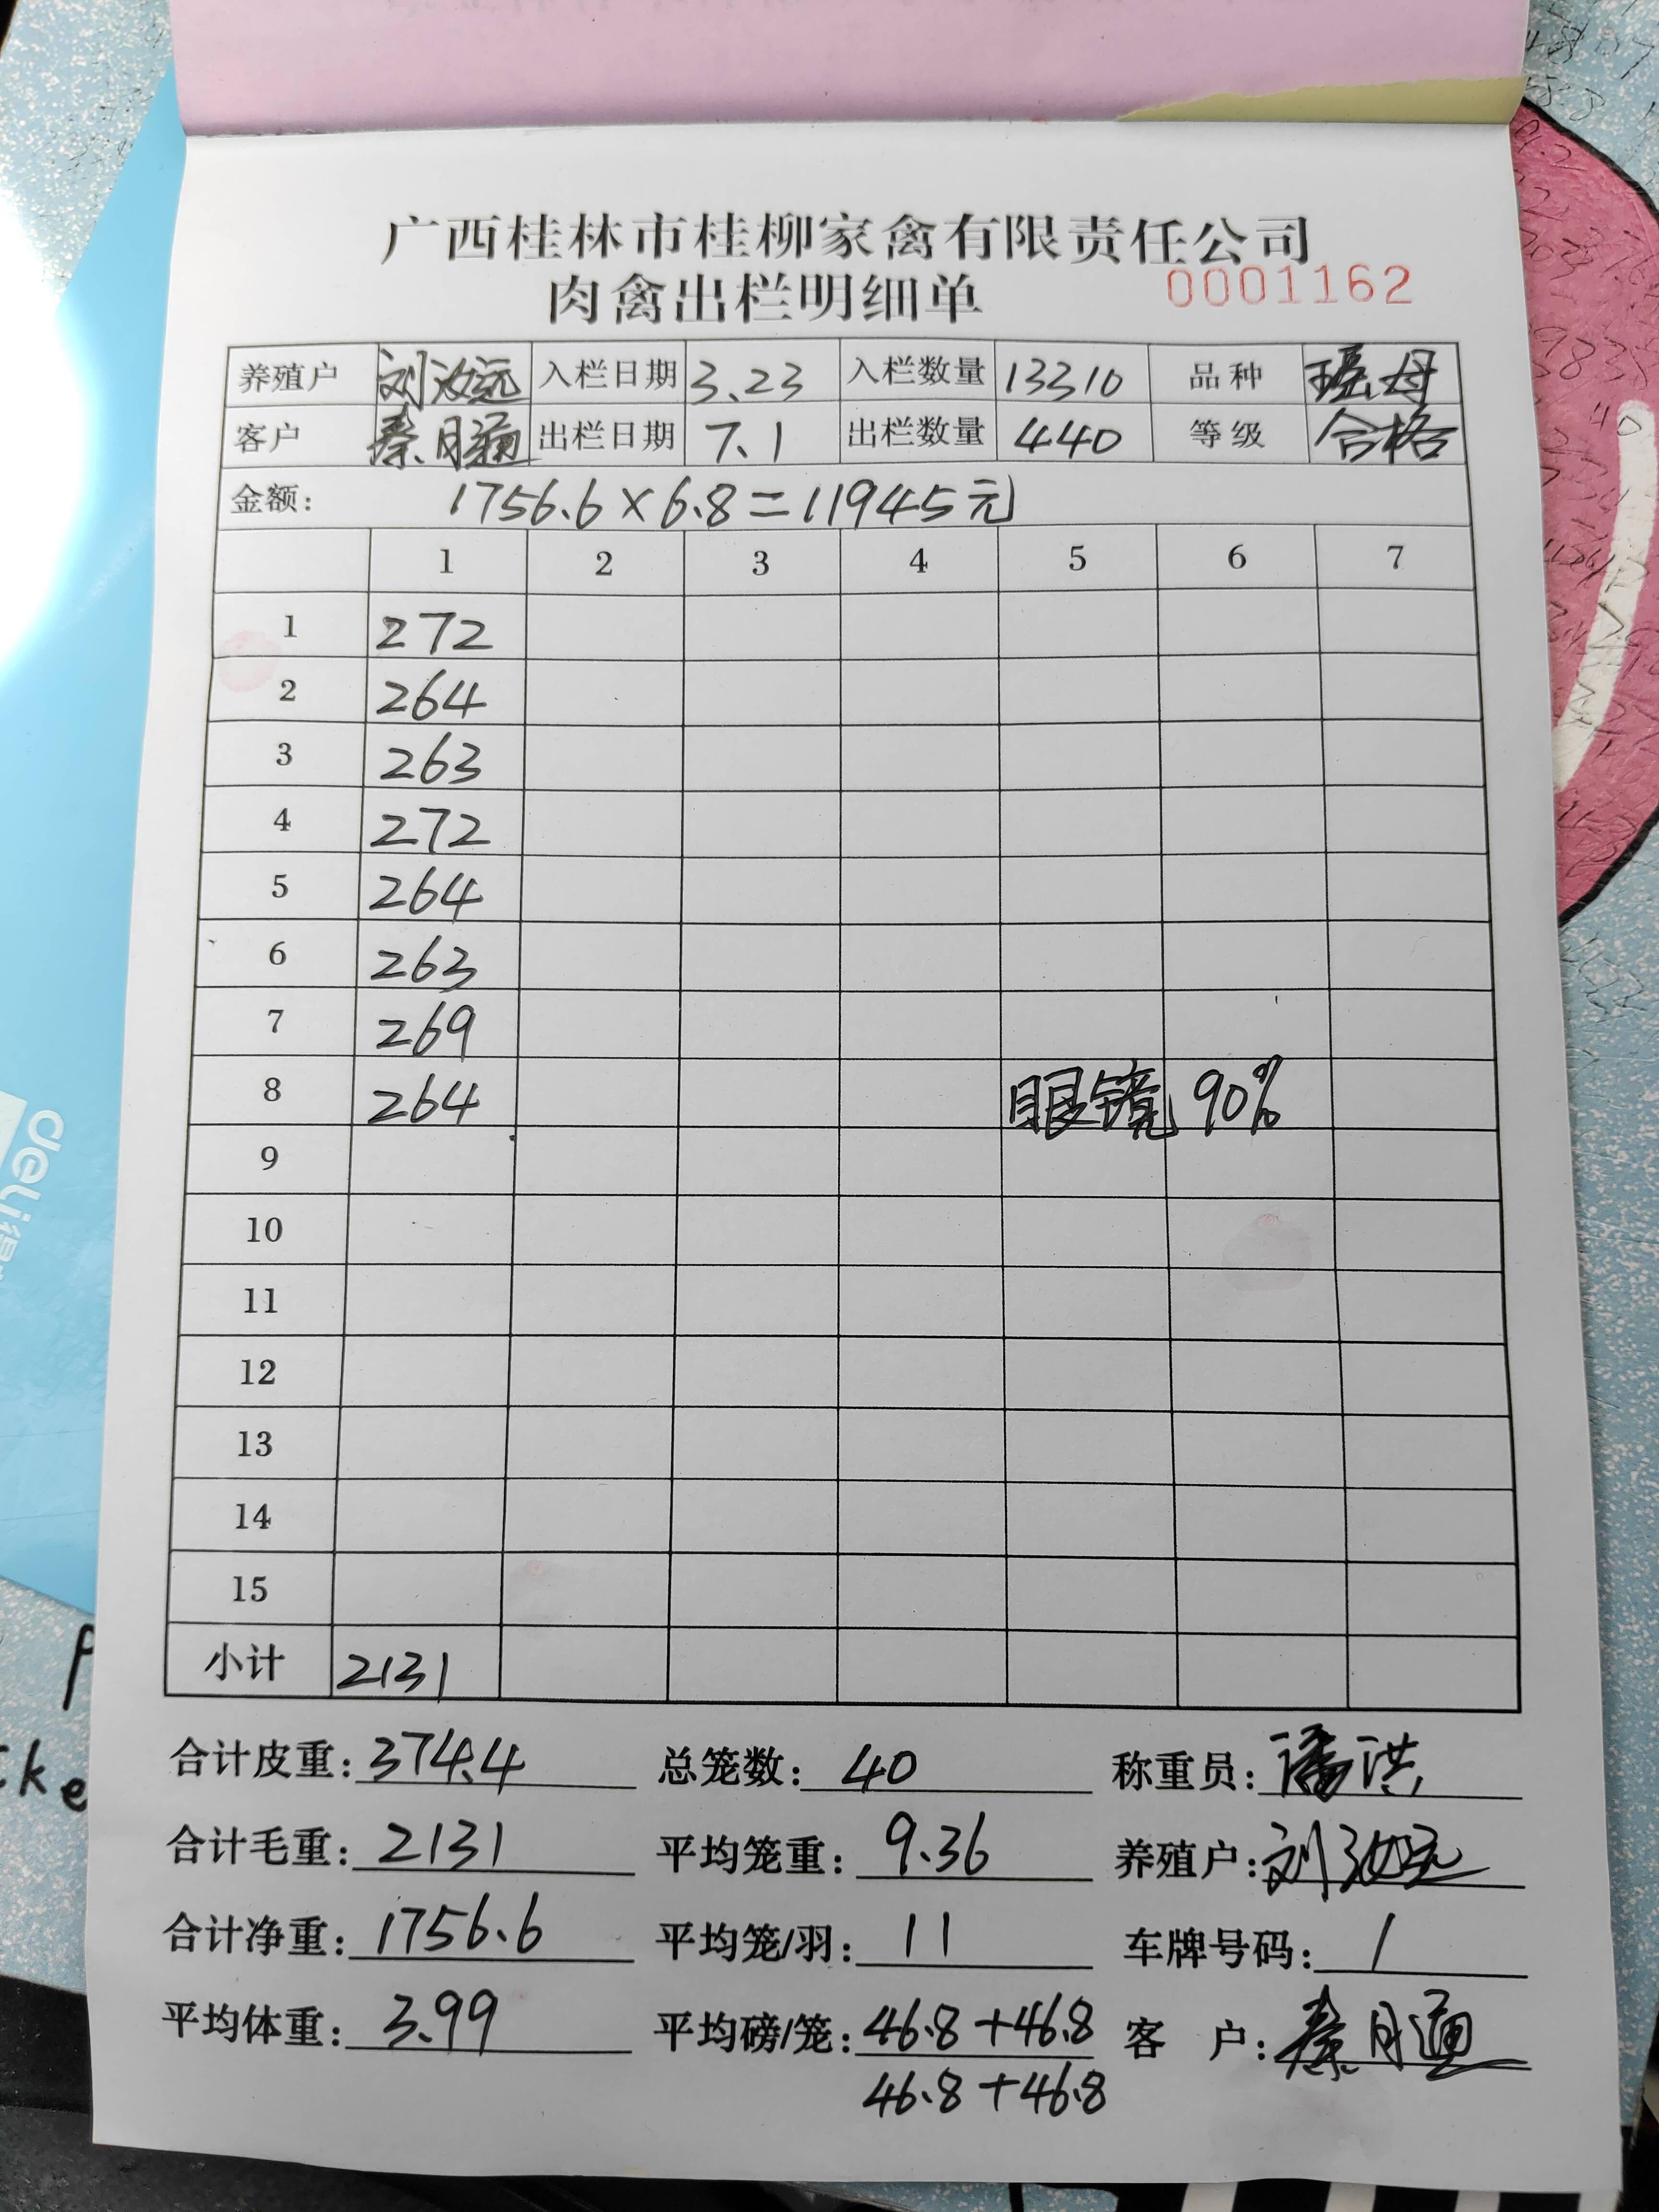 广西桂林市桂柳家禽有限责任公司
肉禽出栏明细单 0001162
养殖户 刘汝远 入栏日期 3.23 入栏数量 13310 品种 瑶母
客户 秦月通 出栏日期 7.1 出栏数量 440 等级 合格
金额: 1756.6×6.8=11945元
1 2 3 4 5 6 7
1 272
2 264
3 263
4 272
5 264
6 263
7 269
8 264 眼镜 90%
9
10
11
12
13
14
15
小计 2131
合计皮重: 374.4 总笼数: 40 称重员: 潘洪
合计毛重: 2131 平均笼重: 9.36 养殖户: 刘汝远
合计净重: 1756.6 平均笼/羽: 11 车牌号码: 1
平均体重: 3.99 平均磅/笼: 46.8+46.8 客 户: 秦月通
46.8+46.8
deli